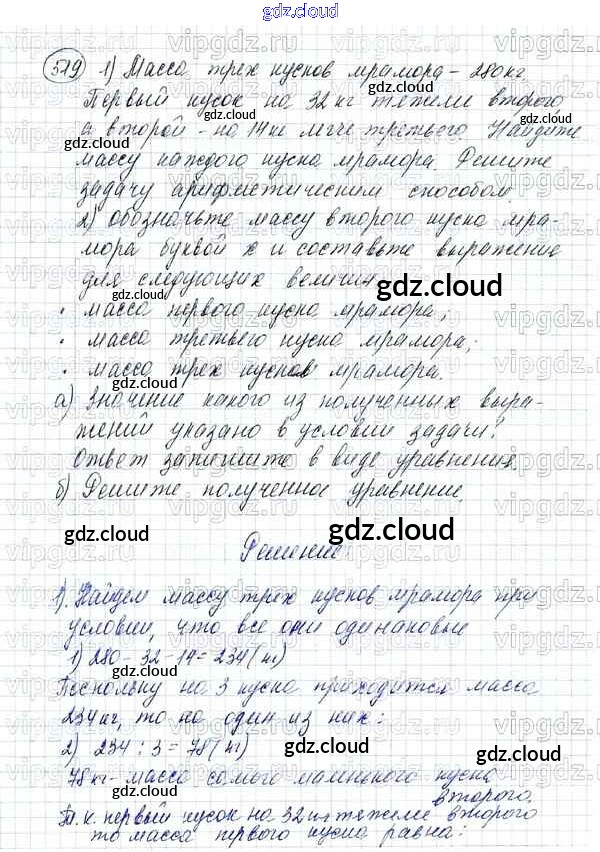 gdz.cloud
519 1) Масса трех кусков мрамора - 280 кг.
Первый кусок на 32 кг тяжелее второго
а второй - на 14 кг легче третьего. Найдите
массу каждого куска мрамора. Решите
задачу арифметическим способом.
2) обозначьте массу второго куска мра-
мора буквой x и составьте выражение
для следующих величин
• масса первого куска мрамора;
• масса третьего куска мрамора;
• масса трех кусков мрамора.
а) Значение какого из полученных выра-
жений указано в условии задачи?
ответ запишите в виде уравнения.
б) Решите полученное уравнение
gdz.cloud gdz.cloud
Решение
1). Найдем массу трех кусков мрамора при
условии, что все они одинаковые
1) 280 - 32 - 14 = 234 (кг)
Поскольку на 3 куска приходится масса
234 кг, то на один из них:
2) 234 : 3 = 78 (кг)
78 кг - масса самого маленького куска
второго.
Т.к. первый кусок на 32 кг тяжелее второго
то масса первого куска равна: